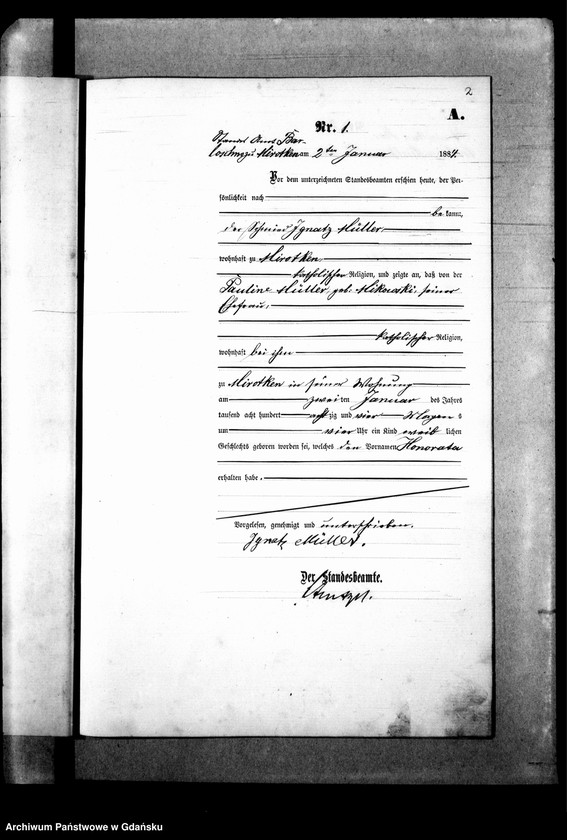 2
A.
Nr. 1.
Standes Amt Bar-
loschno zu Mirotken am 2ten Januar 1884.
Vor dem unterzeichneten Standesbeamten erschien heute, der Per-
sönlichkeit nach
be kannt,
der Schmied Ignatz Müller
wohnhaft zu Mirotken
katholischer Religion, und zeigte an, daß von der
Pauline Müller geb: Mikowski, seiner
Ehefrau,
katholischer Religion,
wohnhaft bei ihm
zu Mirotken in seiner Wohnung
am zwei ten Januar des Jahres
tausend acht hundert acht zig und vier Morgen s
um vier Uhr ein Kind weib lichen
Geschlechts geboren worden sei, welches den Vornamen Honorata
erhalten habe.
Vorgelesen, genehmigt und unterschrieben.
Ignatz Müller.
Der Standesbeamte.
Archiwum Państwowe w Gdańsku